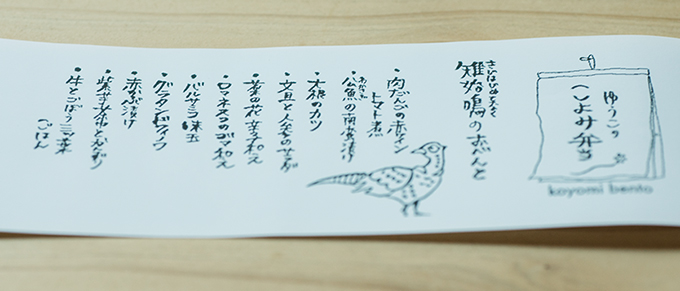 ゆうこの
こよみ弁当
koyomi bento
きじはじめてなく
雉始鳴のべんと
・肉だんごの赤ワイン
トマト煮
わかさぎ
・公魚の南蛮漬け
・大根のカツ
・文旦と人参のサラダ
・菜の花辛子和え
・ロマネスコのゴマ和え
・バルサミコ味玉
・グラタンドフィノワ
・赤かぶ漬け
・紫芋茶巾と
・牛とごぼう三つ葉
ごはん